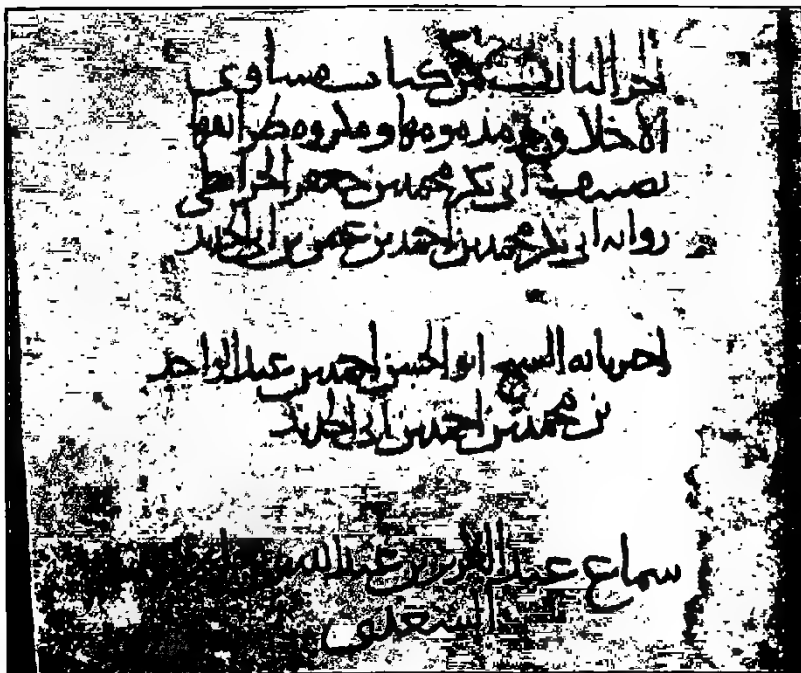 الجزء الثالث من كتاب مساوئ
الاخلاق و مذمومها ومكروه طرائقها
تصنيف ابي بكر محمد بن جعفر الخرائطي
رواية ابي بكر محمد بن احمد بن عثمن بن ابي الحديد
اخبرنا به الشيخ ابو الحسن احمد بن عبد الواحد
بن محمد بن احمد بن ابي الحديد
سماع عبد العزيز بن عبد الله